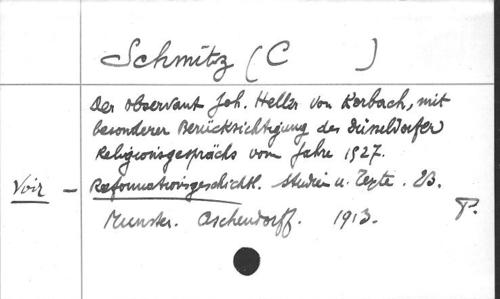 Schmitz (C )
Der Observant Joh. Heller von Korbach, mit
besonderer Berücksichtigung des Düsseldorfer
Religionsgesprächs vom Jahre 1527.
Voir – Reformationsgeschichtl. Studien u. Texte. 23.
Munster. Aschendorff. 1913. P.